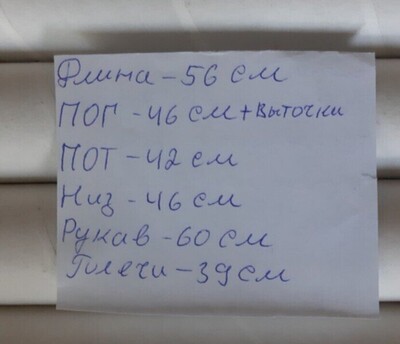 Длина - 56 см
ПОГ - 46 см + выточки
ПОТ - 42 см
Низ - 46 см
Рукав - 60 см
Плечи - 39 см